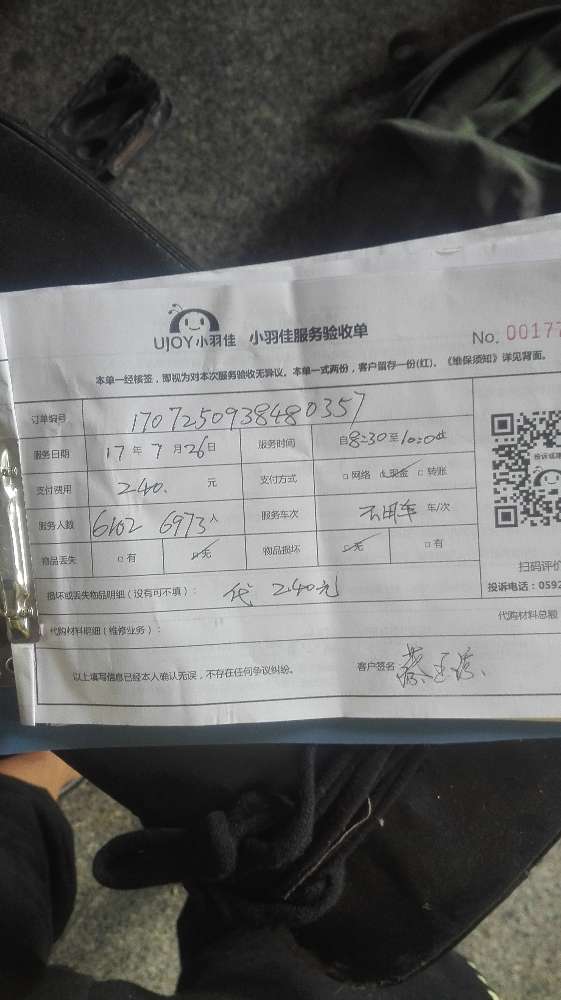 UJOY小羽佳 小羽佳服务验收单 No. 00177
本单一经核签，即视为对本次服务验收无异议。本单一式两份，客户留存一份(红)。《维保须知》详见背面。
订单编号 1707250938480357
服务日期 17年7月26日 服务时间 自8:30至10:0
支付费用 240. 元 支付方式 □网络 ☑现金 □转账
服务人数 6102 6973人 服务车次 车/次
物品丢失 □有 ☑无 物品损坏 ☑无 □有
损坏或丢失物品明细（没有可不填）： 代 240元
代购材料明细（维修业务）： 代购材料总额
以上填写信息已经本人确认无误，不存在任何争议纠纷。 客户签名 蔡
投诉或建
扫码评价
投诉电话：0592